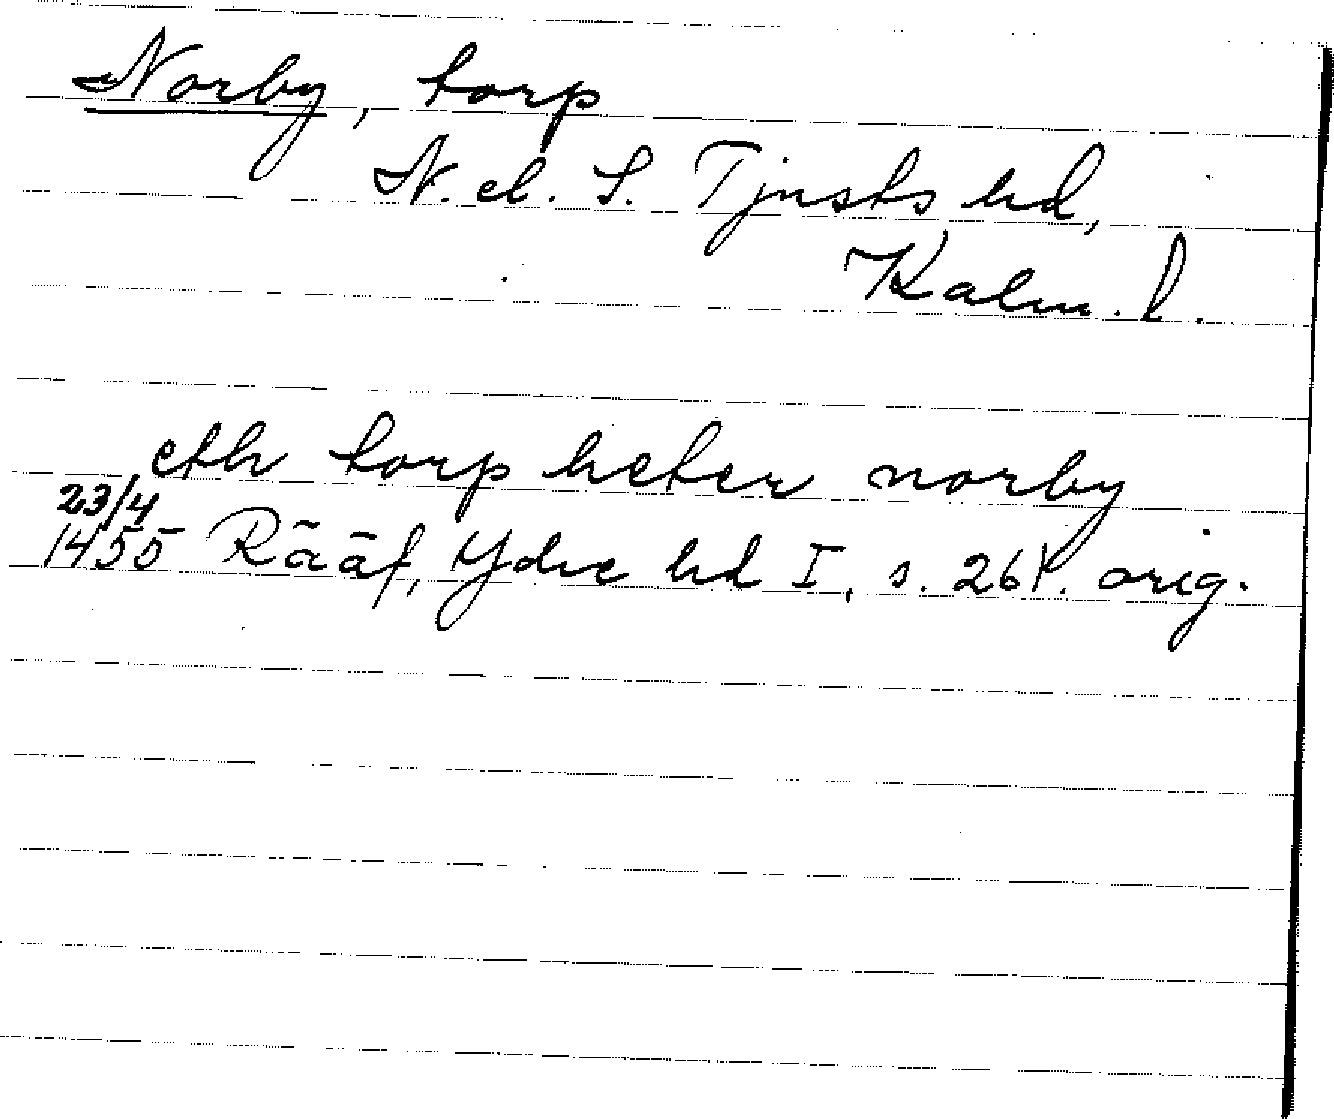 Norby, torp
N. el. S. Tjusts hd,
Kalm. l.
eth torp heter norby
23/4
1455 Rääf, Ydre hd I, s. 261. orig.